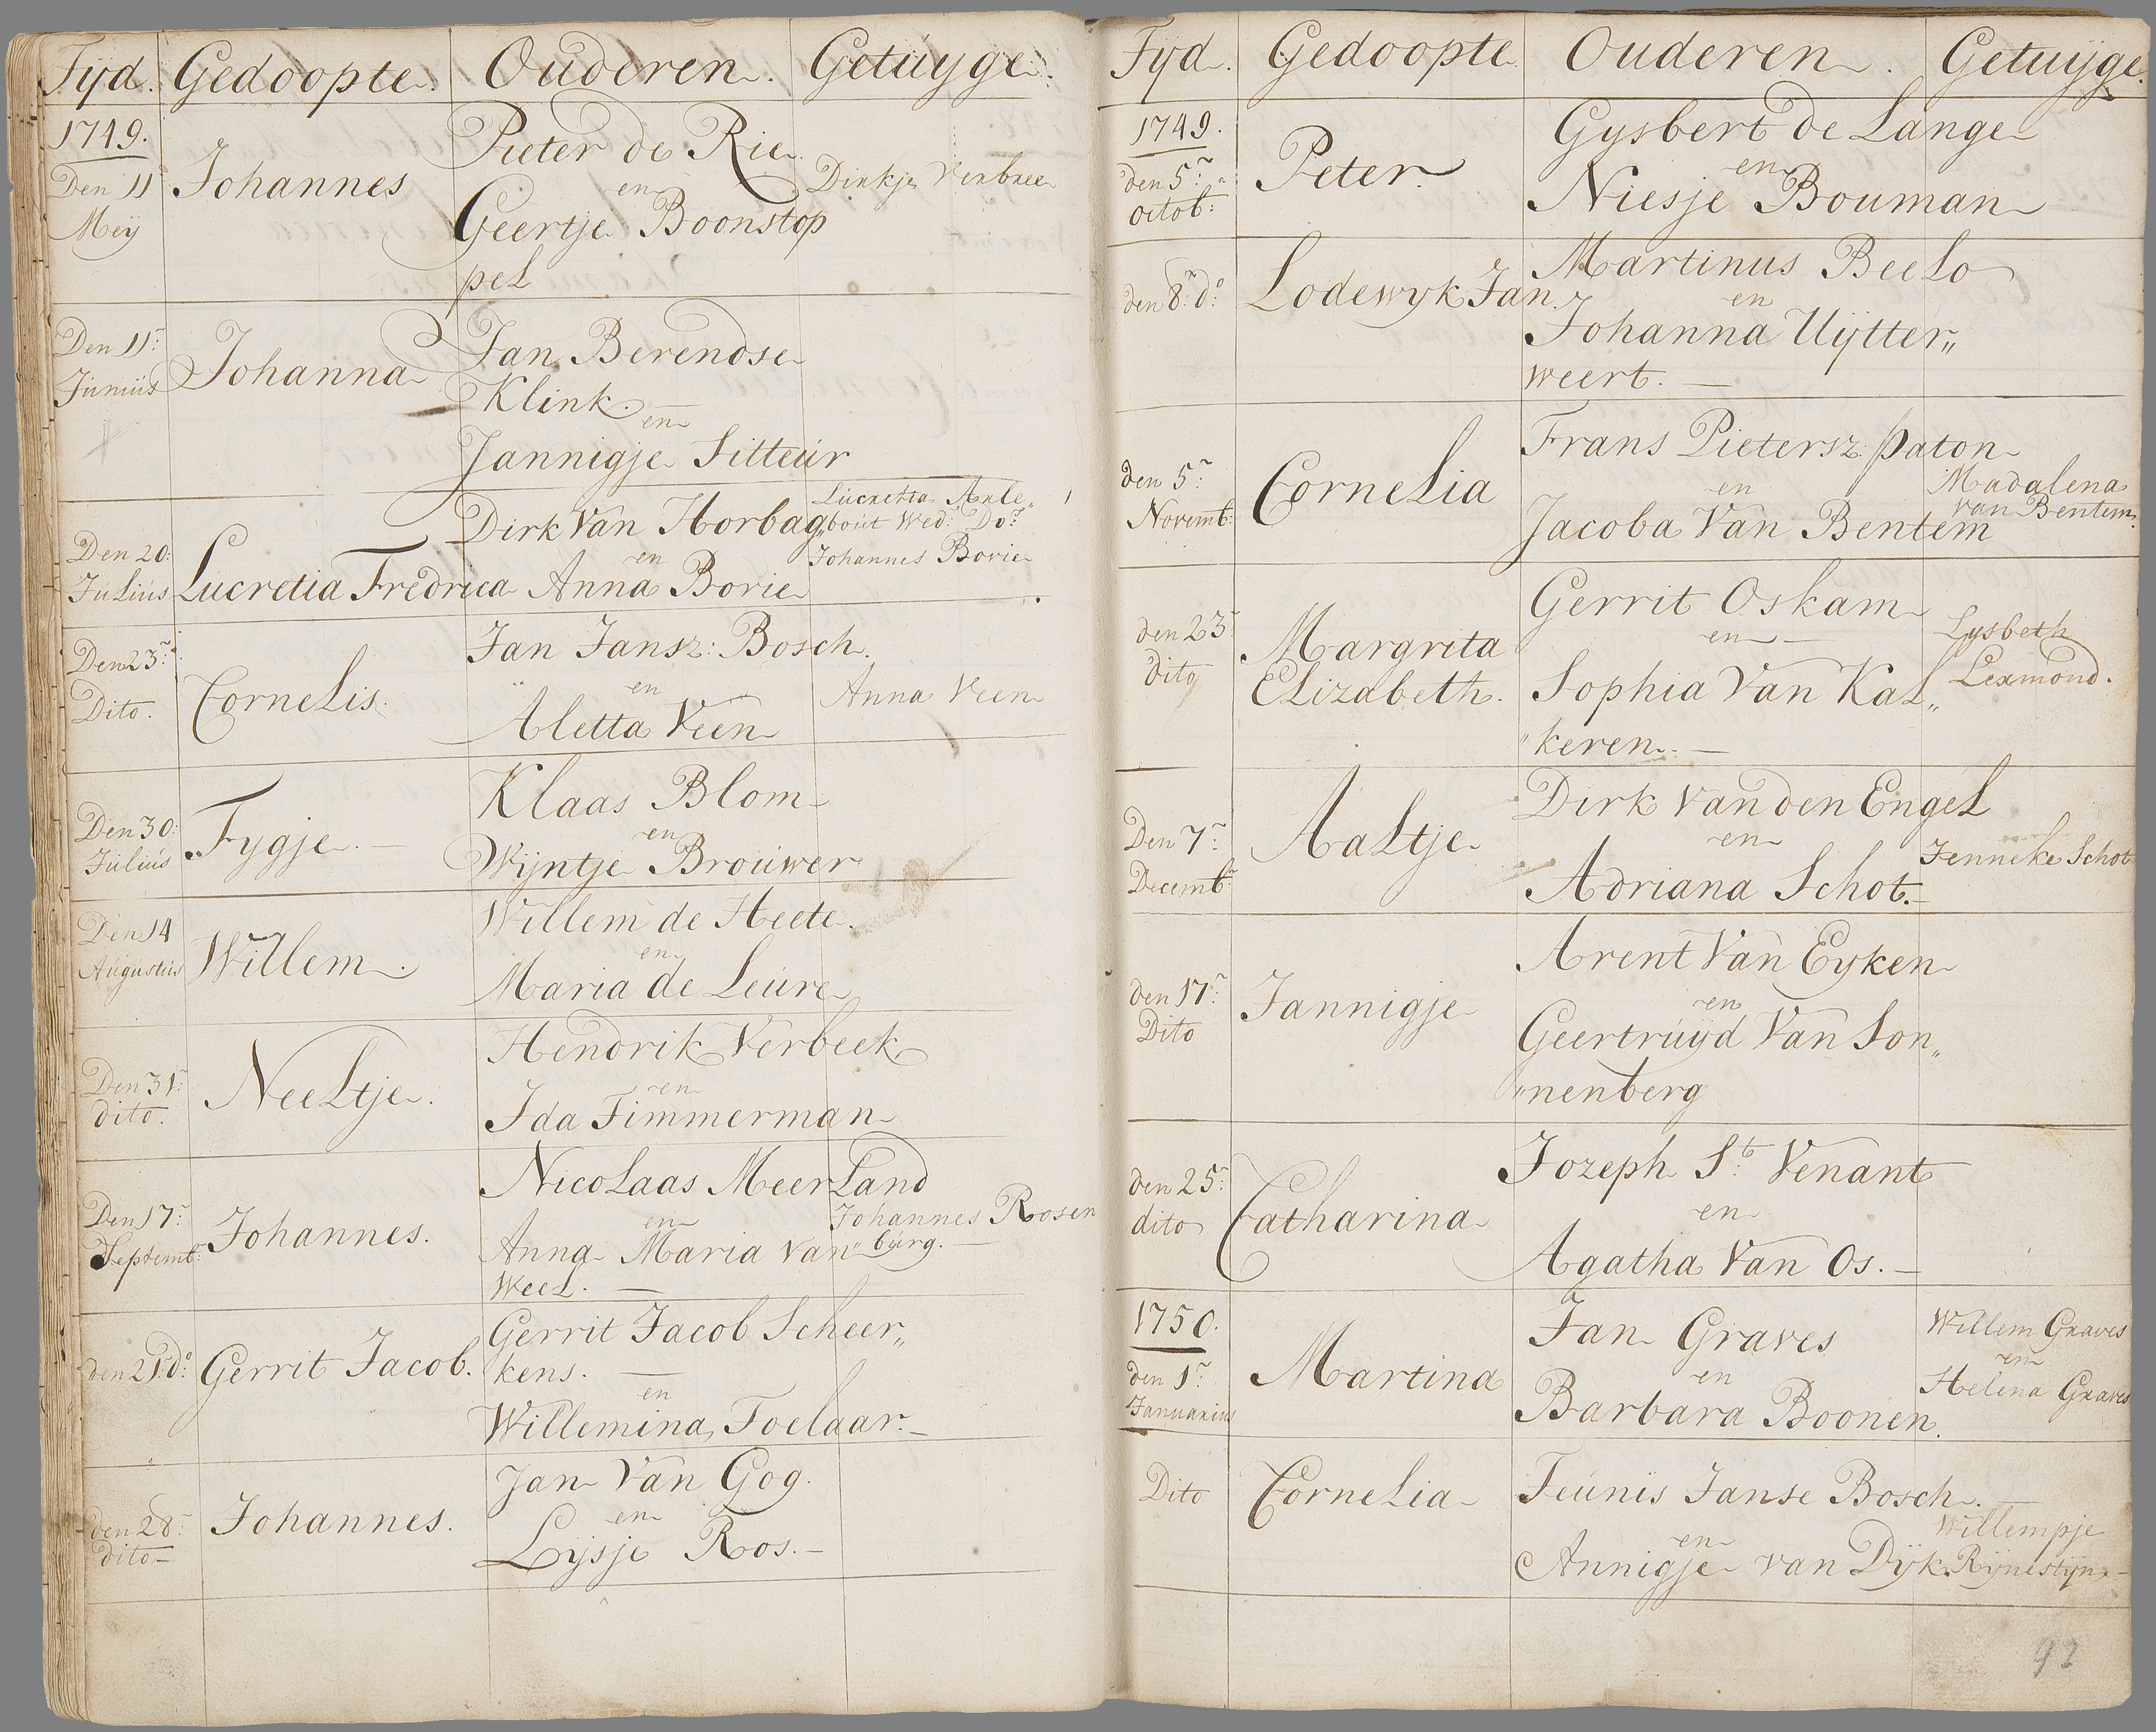 Tyd. Gedoopte. Ouderen. Getuyge.
1749.
Den 11
Meij
Johannes
Pieter de Rie
en
Geertje Boonstop
pel
Dirkje Verbree
Den 11:
Junius
Johanna
Jan Berendse
Klink.
en
Jannigje Sitteur
Den 20:
Julius
Lucretia Fredrica
Dirk Van Horbag
en
Anna Borie
Lucretia Arle„
„bout Wed: Do:
Johannes Borie
Den 23:
Dito.
Cornelis.
Jan Jansz: Bosch.
en
Aletta Veen
Anna Veen
Den 30:
Julius
Tygje.
Klaas Blom
en
Wijntje Brouwer
Den 14
Augustus
Willem.
Willem de Heete.
en
Maria de Leure
Den 31:
dito.
Neeltje.
Hendrik Verbeek
en
Ida Timmerman
Den 17:
Septemb:
Johannes.
Nicolaas Meerland
en
Anna Maria Van
Weel.
Johannes Rosen
„burg.
den 21: do:
Gerrit Jacob.
Gerrit Jacob Scheer„
kens.
en
Willemina Toelaar.
den 28:
dito
Johannes.
Jan Van Gog.
en
Lijsje Roos.
Tyd. Gedoopte Ouderen. Getuyge.
1749.
den 5:
octob:
Peter.
Gysbert de Lange
en
Niesje Bouman
den 8: do:
Lodewyk Jan.
Martinus Beelo
en
Johanna Uijtter„
weert.
den 5:
Novemb:
Cornelia
Frans Pietersz: Paton
en
Jacoba Van Bentem
Madalena
van Bentem.
den 23:
dito
Margrita
Elizabeth.
Gerrit Oskam
en
Sophia Van Kal„
„keren.
Lysbeth
Lexmond.
Den 7:
Decemb:
Aaltje
Dirk Van den Engel
en
Adriana Schot.
Jenneke Schot
den 17:
Dito
Jannigje
Arent Van Eyken
en
Geertruyd Van Son„
„nenberg
den 25:
dito
Catharina
Jozeph St: Venant
en
Agatha Van Os.
1750.
den 1:
Januarius
Martina
Jan Graves
en
Barbara Boonen.
Willem Graves
en
Helena Graves
Dito
Cornelia
Teunis Janse Bosch.
en
Annigje van Dijk.
Willempje
Rijnestijn
92